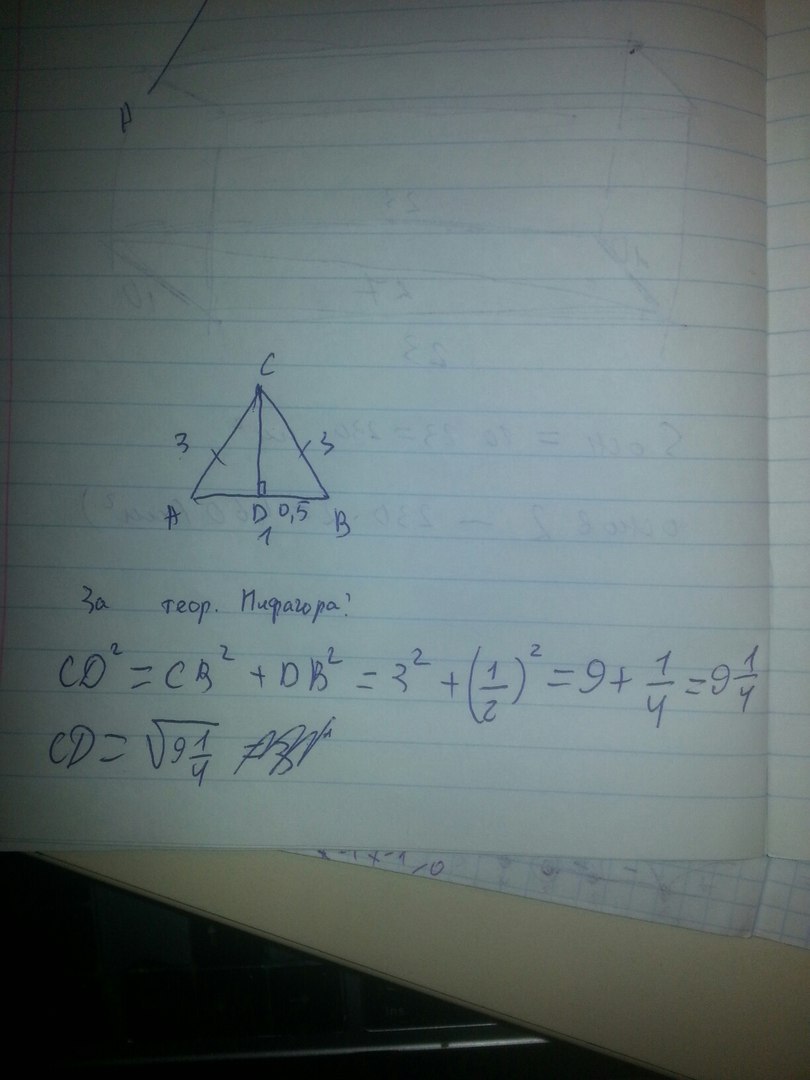 A
C
3 3
A D 0,5 B
1
За теор. Пифагора:
CD² = CB² + DB² = 3² + (1/2)² = 9 + 1/4 = 9 1/4
CD = √9 1/4